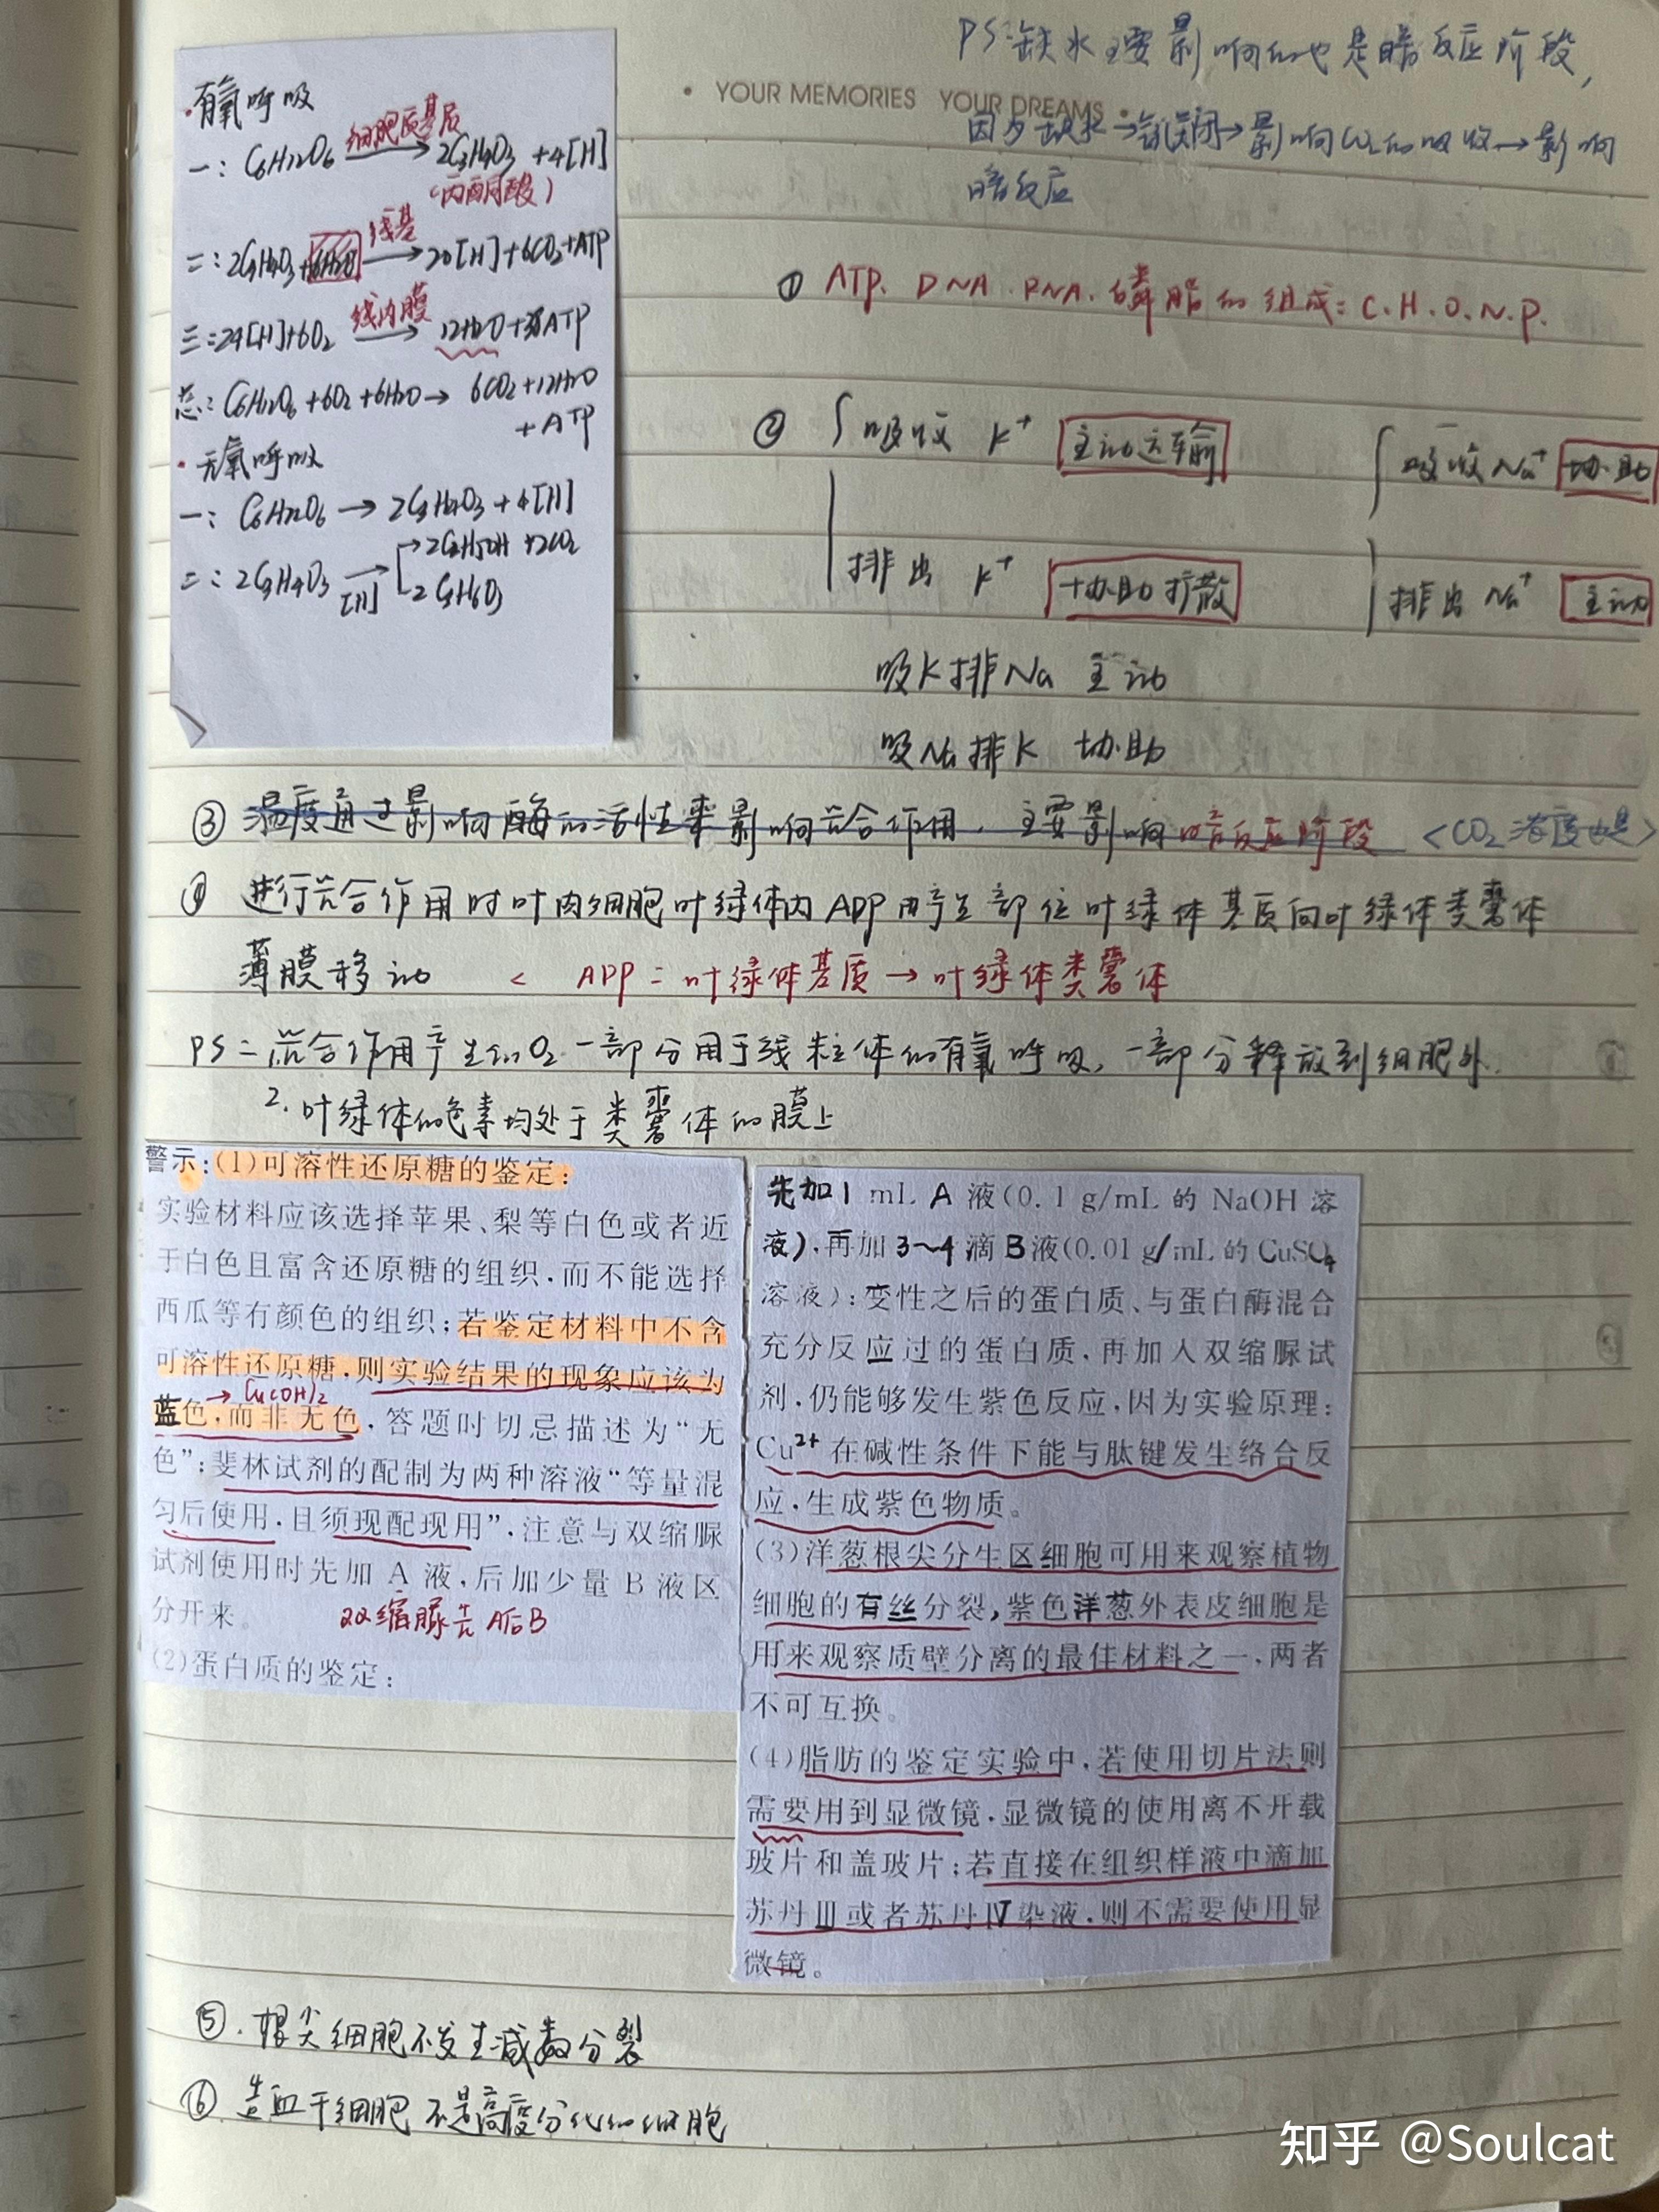 PS:缺水主要影响的也是暗反应阶段,
• YOUR MEMORIES YOUR DREAMS •
因为缺水→气孔关闭→影响CO₂的吸收→影响
暗反应
·有氧呼吸
一: C₆H₁₂O₆ 细胞质基质→ 2C₃H₄O₃ +4[H]
(丙酮酸)
二: 2C₃H₄O₃+6H₂O 线基→ 20[H]+6CO₂+ATP
三:24[H]+6O₂ 线内膜→ 12H₂O+ATP
总: C₆H₁₂O₆+6O₂+6H₂O→ 6CO₂+12H₂O
+ATP
·无氧呼吸
一: C₆H₁₂O₆→2C₃H₄O₃+4[H]
二: 2C₃H₄O₃ [H]→ →2C₂H₅OH+2CO₂
2C₃H₆O₃
① ATP、DNA、RNA、磷脂的组成: C.H.O.N.P.
② 吸收 K⁺ 主动运输 吸收Na⁺ 协助
排出 K⁺ 协助扩散 排出Na⁺ 主动
吸K排Na 主动
吸Na排K 协助
③ 温度通过影响酶的活性来影响光合作用,主要影响暗反应阶段 <CO₂浓度也是>
④ 进行光合作用时叶肉细胞叶绿体内ADP由产生部位叶绿体基质向叶绿体类囊体
薄膜移动 < ADP:叶绿体基质→叶绿体类囊体
PS: 光合作用产生的O₂一部分用于线粒体的有氧呼吸,一部分释放到细胞外.
2.叶绿体的色素均处于类囊体的膜上
警示:(1)可溶性还原糖的鉴定:
实验材料应该选择苹果、梨等白色或者近
于白色且富含还原糖的组织,而不能选择
西瓜等有颜色的组织;若鉴定材料中不含
可溶性还原糖,则实验结果的现象应该为
→Cu(OH)₂
蓝色,而非无色,答题时切忌描述为“无
色”;斐林试剂的配制为两种溶液“等量混
匀后使用,且须现配现用”,注意与双缩脲
试剂使用时先加A液,后加少量B液区
分开来。 双缩脲先A后B
(2)蛋白质的鉴定:
先加1 mL A液(0.1 g/mL的NaOH溶
液),再加3~4滴B液(0.01 g/mL的CuSO₄
溶液):变性之后的蛋白质、与蛋白酶混合
充分反应过的蛋白质,再加入双缩脲试
剂,仍能够发生紫色反应,因为实验原理:
Cu²⁺在碱性条件下能与肽键发生络合反
应,生成紫色物质。
(3)洋葱根尖分生区细胞可用来观察植物
细胞的有丝分裂,紫色洋葱外表皮细胞是
用来观察质壁分离的最佳材料之一,两者
不可互换。
(4)脂肪的鉴定实验中,若使用切片法则
需要用到显微镜,显微镜的使用离不开载
玻片和盖玻片;若直接在组织样液中滴加
苏丹Ⅲ或者苏丹Ⅳ染液,则不需要使用显
微镜。
⑤.根尖细胞不发生减数分裂
⑥ 造血干细胞不是高度分化的细胞
知乎 @Soulcat